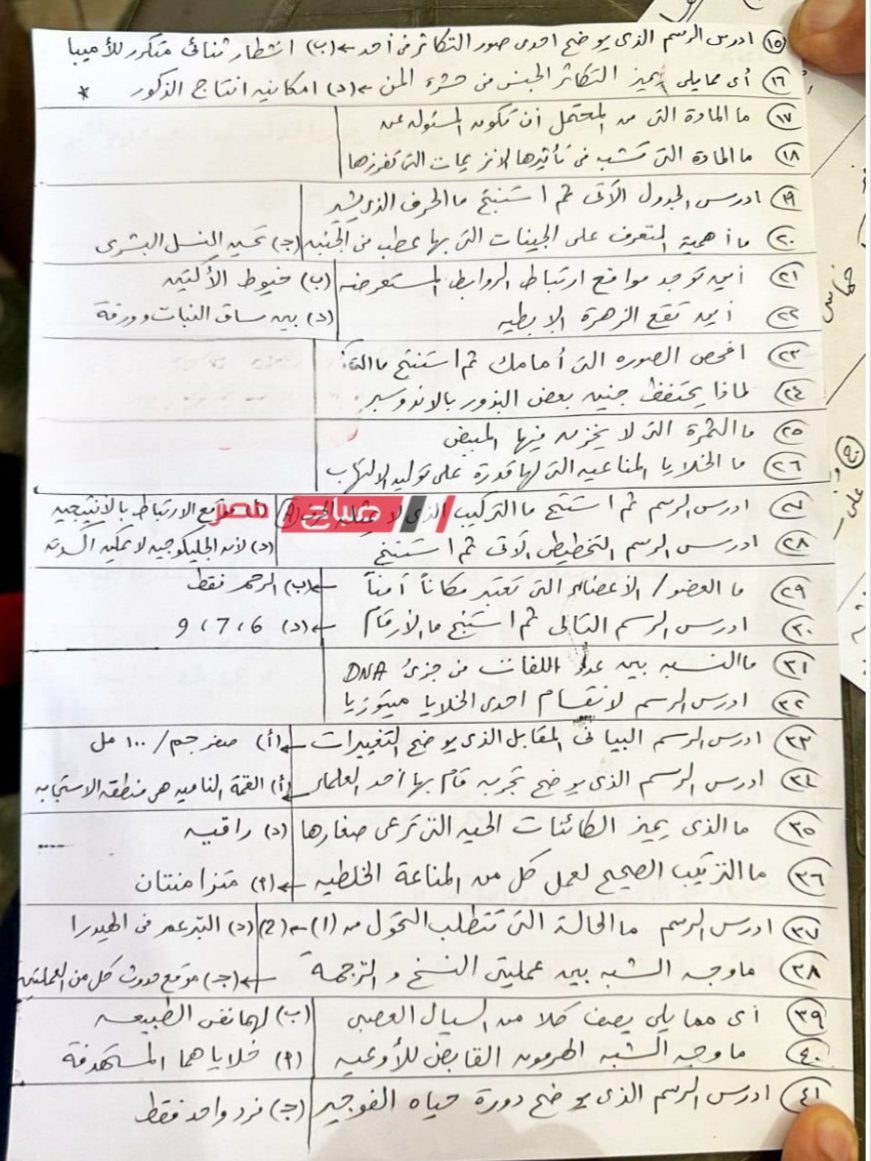 ١٥ ادرس الرسم الذى يوضح احدى صور التكاثر فى أحد ← (ب) انشطار ثنائى متكرر للأميبا
١٦ أى مما يلى يميز التكاثر الجنسى فى حشرة المن ← (د) امكانيه انتاج الذكور *
١٧ ما المادة التى من المحتمل أن تكون المسئوله عن
١٨ ما المادة التى تتسبب فى تأثيرها الانزيمات التى تفرزها
١٩ ادرس الجدول الآتى ثم استنتج ما الحرف الذى يشير
٢٠ ما أهمية التعرف على الجينات التى بها عطب فى الجنين (جـ) تحسين النسل البشرى
٢١ أين توجد مواقع ارتباط الروابط المستعرضه (ب) خيوط الأكتين
٢٢ أين تقع الزهرة الابطيه (د) بين ساق النبات وورقة
٢٣ افحص الصوره التى أمامك ثم استنتج ما
٢٤ لماذا يحتفظ جنين بعض البذور بالاندوسبر
٢٥ ما الثمرة التى لا يخزن فيها المبيض
٢٦ ما الخلايا المناعيه التى لها قدرة على توليد الالتهاب
٢٧ ادرس الرسم ثم استنتج ما التركيب الذى لا يمثله الحرف (أ) مواقع الارتباط بالانتيجين
صباح مصر
٢٨ ادرس الرسم التخطيطى الآتى ثم استنتج (د) لأن الجليكوجين لا يمكن أكسدته
٢٩ ما العضو / الأعضاء التى تعتبر مكاناً آمناً ← (ب) الرحم فقط
٣٠ ادرس الرسم التالى ثم استنتج ما الأرقام ← (د) 6 ، 7 ، 9
٣١ ما النسبه بين عدد اللفات فى جزئ DNA
٣٢ ادرس الرسم لانقسام احدى الخلايا ميتوزيا
٣٣ ادرس الرسم البيانى المقابل الذى يوضح التغييرات ← (أ) صفر جم / ١٠٠ مل
٣٤ ادرس الرسم الذى يوضح تجربه قام بها أحد العلماء (أ) القمة الناميه هى منطقه الاستجابه
٣٥ ما الذى يميز الكائنات الحيه التى ترعى صغارها (د) راقيه
٣٦ ما الترتيب الصحيح لعمل كل من المناعة الخلطيه ← (أ) متزامنتان
٣٧ ادرس الرسم ما الحالة التى تتطلب التحول من (1) ← (2) (د) التبرعم فى الهيدرا
٣٨ ما وجه الشبه بين عمليتى النسخ و الترجمة ← (جـ) موقع حدوث كل من العمليتين
٣٩ أى مما يلى يصف كلا من السيال العصبى (ب) لهما نفس الطبيعه
٤٠ ما وجه الشبه الهرمون القابض للأوعيه (أ) خلاياهما المستهدفة
٤١ ادرس الرسم الذى يوضح دورة حياه الفوجير (جـ) فرد واحد فقط